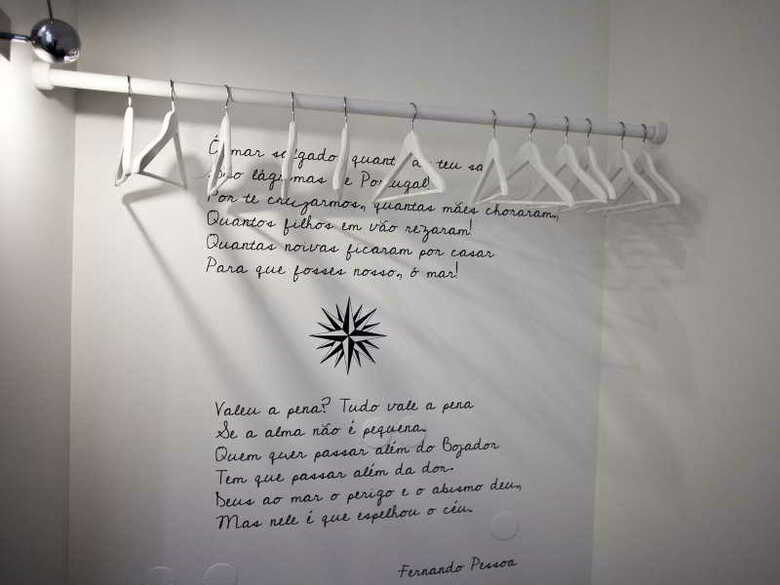 Ó mar salgado, quanto teu
lágrimas de Portugal!
Por te cruzarmos, quantas mães choraram,
Quantos filhos em vão rezaram!
Quantas noivas ficaram por casar
Para que fosses nosso, ó mar!
Valeu a pena? Tudo vale a pena
Se a alma não é pequena.
Quem quer passar além do Bojador
Tem que passar além da dor.
Deus ao mar o perigo e o abismo deu,
Mas nele é que espelhou o céu.
Fernando Pessoa